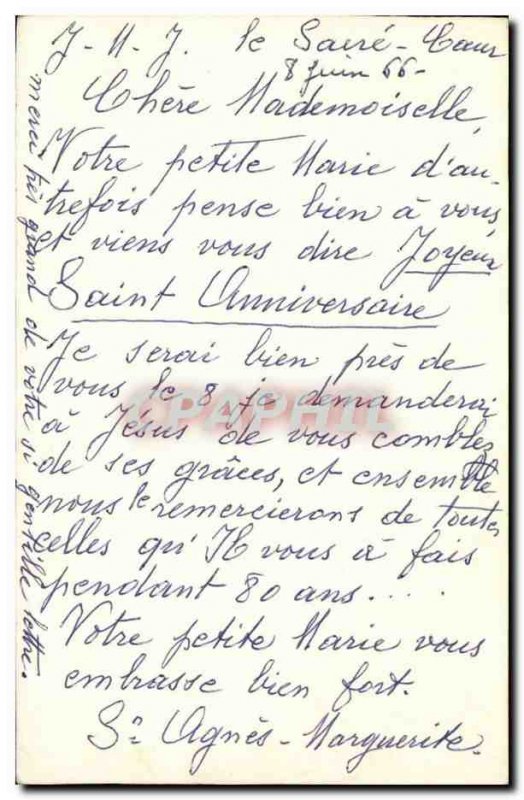 J-M-J. le Sacré-Cœur
8 juin 66-
Chère Mademoiselle,
Votre petite Marie d'au-
trefois pense bien à vous,
et viens vous dire Joyeux
Saint Anniversaire
Je serai bien près de
vous le 8 je demanderai
à Jésus de vous combler
de ses grâces, et ensemble
nous le remercierons de toutes
celles qu'Il vous à fais
pendant 80 ans....
Votre petite Marie vous
embrasse bien fort.
Sr Agnès-Marguerite.
merci très grand de votre si gentille lettre.
CPAPHIL